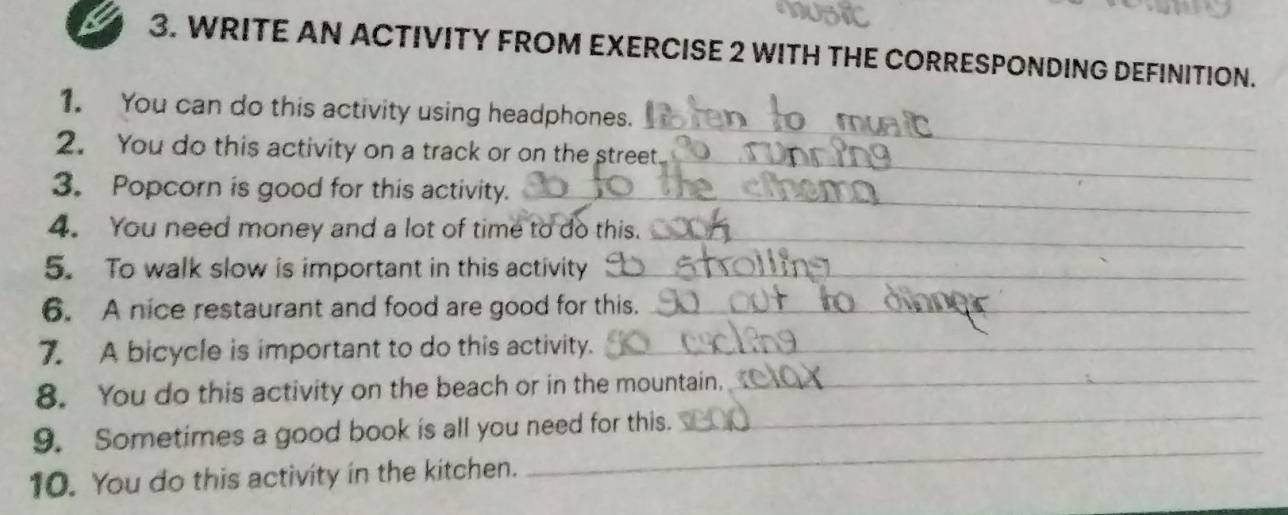 music
3. WRITE AN ACTIVITY FROM EXERCISE 2 WITH THE CORRESPONDING DEFINITION.
1. You can do this activity using headphones. listen to music
2. You do this activity on a track or on the street. go running
3. Popcorn is good for this activity. go to the cinema
4. You need money and a lot of time to do this. cook
5. To walk slow is important in this activity go strolling
6. A nice restaurant and food are good for this. go out to dinner
7. A bicycle is important to do this activity. go cycling
8. You do this activity on the beach or in the mountain. relax
9. Sometimes a good book is all you need for this. read
10. You do this activity in the kitchen.